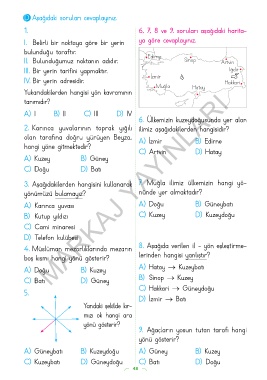 Aşağıdaki soruları cevaplayınız.
1.
I. Belirli bir noktaya göre bir yerin
bulunduğu taraftır.
II. Bulunduğumuz noktanın adıdır.
III. Bir yerin tarifini yapmaktır.
IV. Bir yerin adresidir.
Yukarıdakilerden hangisi yön kavramının
tanımıdır?
A) I B) II C) III D) IV
2. Karınca yuvalarının toprak yığılı
olan tarafına doğru yürüyen Beyza,
hangi yöne gitmektedir?
A) Kuzey B) Güney
C) Doğu D) Batı
3. Aşağıdakilerden hangisini kullanarak
yönümüzü bulamayız?
A) Karınca yuvası
B) Kutup yıldızı
C) Cami minaresi
D) Telefon kulübesi
4. Müslüman mezarlıklarında mezarın
baş kısmı hangi yönü gösterir?
A) Doğu B) Kuzey
C) Batı D) Güney
5.
Yandaki şekilde kır-
mızı ok hangi ara
yönü gösterir?
A) Güneybatı B) Kuzeydoğu
C) Kuzeybatı D) Güneydoğu
6, 7, 8 ve 9. soruları aşağıdaki harita-
ya göre cevaplayınız.
Edirne
Sinop
Artvin
Iğdır
İzmir
Hakkari
Muğla
Hatay
6. Ülkemizin kuzeydoğusunda yer alan
ilimiz aşağıdakilerden hangisidir?
A) İzmir B) Edirne
C) Artvin D) Hatay
7. Muğla ilimiz ülkemizin hangi yö-
nünde yer almaktadır?
A) Doğu B) Güneybatı
C) Kuzey D) Kuzeydoğu
8. Aşağıda verilen il - yön eşleştirme-
lerinden hangisi yanlıştır?
A) Hatay → Kuzeybatı
B) Sinop → Kuzey
C) Hakkari → Güneydoğu
D) İzmir → Batı
9. Ağaçların yosun tutan tarafı hangi
yönü gösterir?
A) Güney B) Kuzey
C) Batı D) Doğu
YAYINLARI